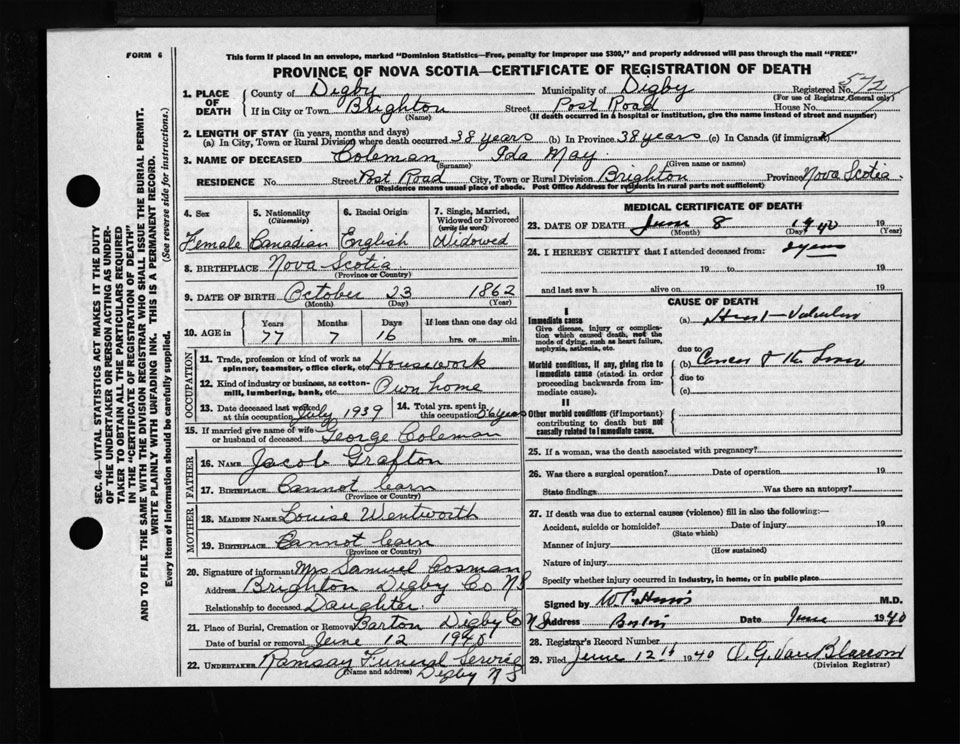 FORM 6
This form if placed in an envelope, marked "Dominion Statistics—Free, penalty for improper use $300," and properly addressed will pass through the mail "FREE"
PROVINCE OF NOVA SCOTIA—CERTIFICATE OF REGISTRATION OF DEATH
1. PLACE OF DEATH County of Digby Municipality of Digby Registered No. 572
(For use of Registrar General only)
If in City or Town Brighton Street Post Road House No.
(Name) (If death occurred in a hospital or institution, give the name instead of street and number)
2. LENGTH OF STAY (in years, months and days)
(a) In City, Town or Rural Division where death occurred 38 years (b) In Province 38 years (c) In Canada (if immigrant)
3. NAME OF DECEASED Coleman Ida May
(Surname) (Given name or names)
RESIDENCE No. Street Post Road City, Town or Rural Division Brighton Province Nova Scotia
(Residence means usual place of abode. Post Office Address for residents in rural parts not sufficient)
4. Sex 5. Nationality (Citizenship) 6. Racial Origin 7. Single, Married, Widowed or Divorced (write the word)
Female Canadian English Widowed
8. BIRTHPLACE Nova Scotia
(Province or Country)
9. DATE OF BIRTH October 23 1862
(Month) (Day) (Year)
10. AGE in Years Months Days If less than one day
77 7 16 hrs. or min.
OCCUPATION
11. Trade, profession or kind of work as spinner, teamster, office clerk, etc. Housework
12. Kind of industry or business, as cotton-mill, lumbering, bank, etc. Own home
13. Date deceased last worked at this occupation July 1939 14. Total yrs. spent in this occupation 56 years
15. If married give name of wife or husband of deceased George Coleman
FATHER
16. NAME Jacob Grafton
17. BIRTHPLACE Cannot learn
(Province or Country)
MOTHER
18. MAIDEN NAME Louise Wentworth
19. BIRTHPLACE Cannot learn
(Province or Country)
20. Signature of informant Mrs Samuel Cosman
Address Brighton Digby Co NS
Relationship to deceased Daughter
21. Place of Burial, Cremation or Removal Barton Digby Co NS
Date of burial or removal June 12 1940
22. UNDERTAKER Ramsay Funeral Service
(Name and Address) Digby NS
MEDICAL CERTIFICATE OF DEATH
23. DATE OF DEATH June 8 1940 19
(Month) (Day) (Year)
24. I HEREBY CERTIFY that I attended deceased from: 2 years
19 to 19
and last saw h alive on 19
CAUSE OF DEATH
I
Immediate cause
Give disease, injury or complication which caused death, not the mode of dying, such as heart failure, asphyxia, asthenia, etc.
(a) Heart - Valvular
due to
Morbid conditions, if any, giving rise to immediate cause (stated in order proceeding backwards from immediate cause).
(b) Cancer of the Liver
due to
(c)
II
Other morbid conditions (if important) contributing to death but not causally related to immediate cause.
25. If a woman, was the death associated with pregnancy?
26. Was there a surgical operation? Date of operation 19
State findings Was there an autopsy?
27. If death was due to external causes (violence) fill in also the following:—
Accident, suicide or homicide? Date of injury 19
(State which)
Manner of injury
(How sustained)
Nature of injury
Specify whether injury occurred in industry, in home, or in public place
Signed by M.D.
Address Date June 1940
28. Registrar's Record Number
29. Filed June 12th 1940 O. G. Van Blarcom
(Division Registrar)
SEC. 46—VITAL STATISTICS ACT MAKES IT THE DUTY
OF THE UNDERTAKER OR PERSON ACTING AS UNDER-
TAKER TO OBTAIN ALL THE PARTICULARS REQUIRED
IN THE "CERTIFICATE OF REGISTRATION OF DEATH"
AND TO FILE THE SAME WITH THE DIVISION REGISTRAR WHO SHALL ISSUE THE BURIAL PERMIT.
WRITE PLAINLY WITH UNFADING INK. THIS IS A PERMANENT RECORD.
Every item of information should be carefully supplied. (See reverse side for instructions.)